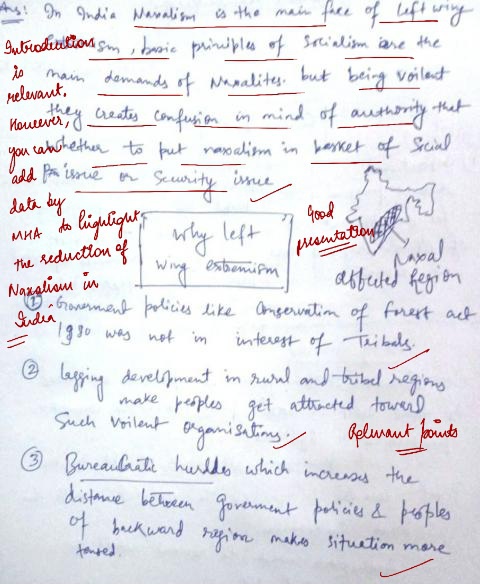 Ans: In India Naxalism is the main face of left wing
ism, basic priniples of Socialism are the
main demands of Naxalites. but being voilent
they creates confusion in mind of authority that
whether to put naxalism in basket of Social
issue or Security issue
Introduction
is
relevant.
However,
you can
add
data by
MHA to highlight
the reduction of
Naxalism in
India
Good
presentation
Naxal
affected Region
why left
wing extremism
① Goverment policies like Conservation of Forest act
1980 was not in interest of Tribals.
② legging development in rural and tribel regions
make peoples get attracted toward
Such voilent organisations.
Relevant points
③ Bureaucratic hurldes which increases the
distance between goverment policies & peoples
of backward region makes situation more